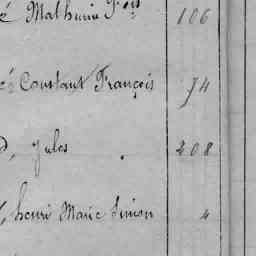 é Mathurin F.ois 106
é Constant François 74
d, Jules 208
henri Marie Simon 4